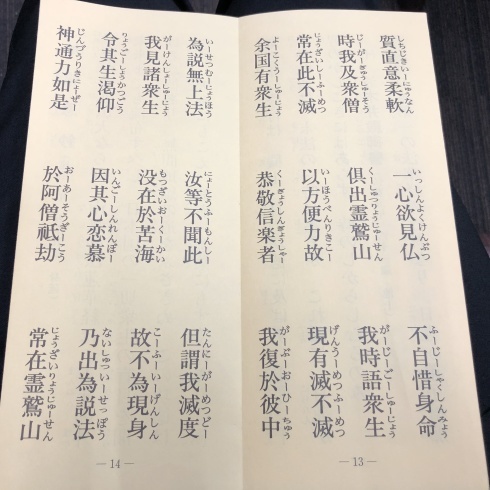 質直意柔軟 一心欲見仏 不自惜身命
しちじきいーにゅうなん いっしんよくけんぶつ ふーじーしゃくしんみょう
時我及衆僧 倶出霊鷲山 我時語衆生
じーがーぎゅうしゅーそう くーしゅつりょうじゅーせん がーじーごーしゅーじょう
常在此不滅 以方便力故 現有滅不滅
じょうざいしーふーめつ いーほうべんりきこー げんうーめつふーめつ
余国有衆生 恭敬信楽者 我復於彼中
よーこくうーしゅーじょう くーぎょうしんぎょうしゃー がーぶーおーひーちゅう
—13—
為説無上法 汝等不聞此 但謂我滅度
いーせつむーじょうほう にょーとうふーもんしー たんにーがーめつどー
我見諸衆生 没在於苦海 故不為現身
がーけんしょーしゅーじょう もつざいおーくーかい こーふーいーげんしん
令其生渇仰 因其心恋慕 乃出為説法
りょうごーしょうかつごう いんごーしんれんぼー ないしゅついーせっぽう
神通力如是 於阿僧祇劫 常在霊鷲山
じんづうりきにょーぜー おーあーそうぎーこう じょうざいりょうじゅーせん
—14—